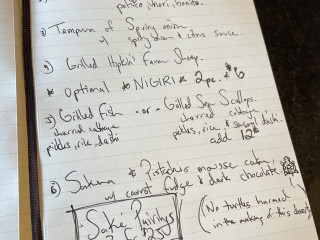 potato, nori, bonito.
3) Tempura of Spring onion
w/ spicy dashi & citrus sauce.
4) Grilled Hopkins' Farm Sheep.
* Optional * NIGIRI * 2pc. + $6
5) Grilled Fish
charred cabbage
pickles, rice, dashi
- or -
Grilled Sea Scallops.
charred cabbage
pickles, rice & seaweed dashi.
add 12
6) Sakura & Pistachio mousse cake,
w/ carrot fudge & dark chocolate
Saké Pairings
(No turtles harmed
in the making of this dessert)